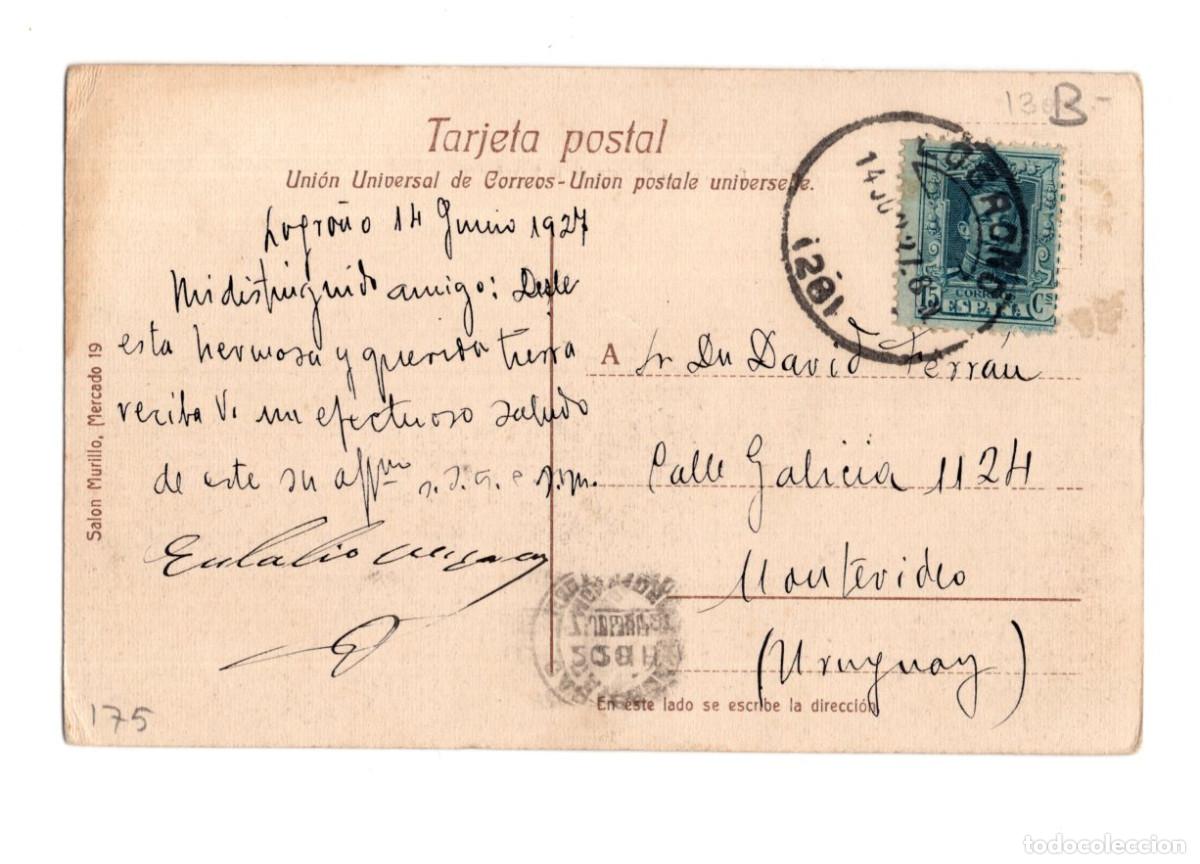 13 B-
Tarjeta postal
Unión Universal de Correos - Union postale universelle.
LOGROÑO
14 JUN 27
(281
15 CORREOS Cs
ESPAÑA
Logroño 14 Junio 1927
Mi distinguido amigo: Desde
esta hermosa y querida tierra
reciba V. un efectuoso saludo
de este su affmo s.s.q.e.s.m.
Eulalio
A Sr Dn David Ferrán
Calle Galicia 1124
Montevideo
(Uruguay)
En este lado se escribe la dirección
Salon Murillo, Mercado 19
175
todocoleccion